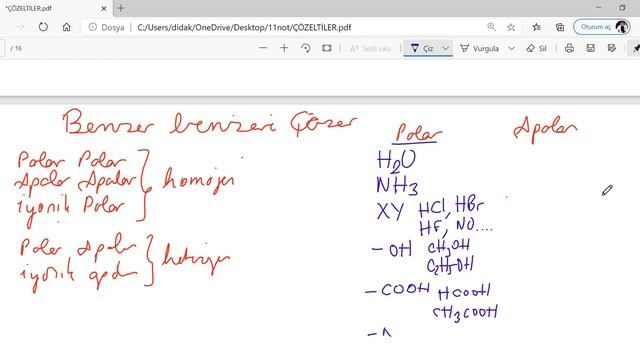 *ÇÖZELTİLER.pdf
Dosya | C:/Users/didak/OneDrive/Desktop/11not/ÇÖZELTİLER.pdf
Oturum aç
/ 16
Sesli oku
Çiz
Vurgula
Sil
Benzer benzeri Çözer
Polar Polar
Apolar Apolar
iyonik Polar
homojen
Polar, Apolar
iyonik apolar
heterojen
Polar
Apolar
H₂O
NH₃
XY HCl, HBr
HF, NO....
-OH CH₃OH
C₂H₅OH
-COOH HCOOH
CH₃COOH